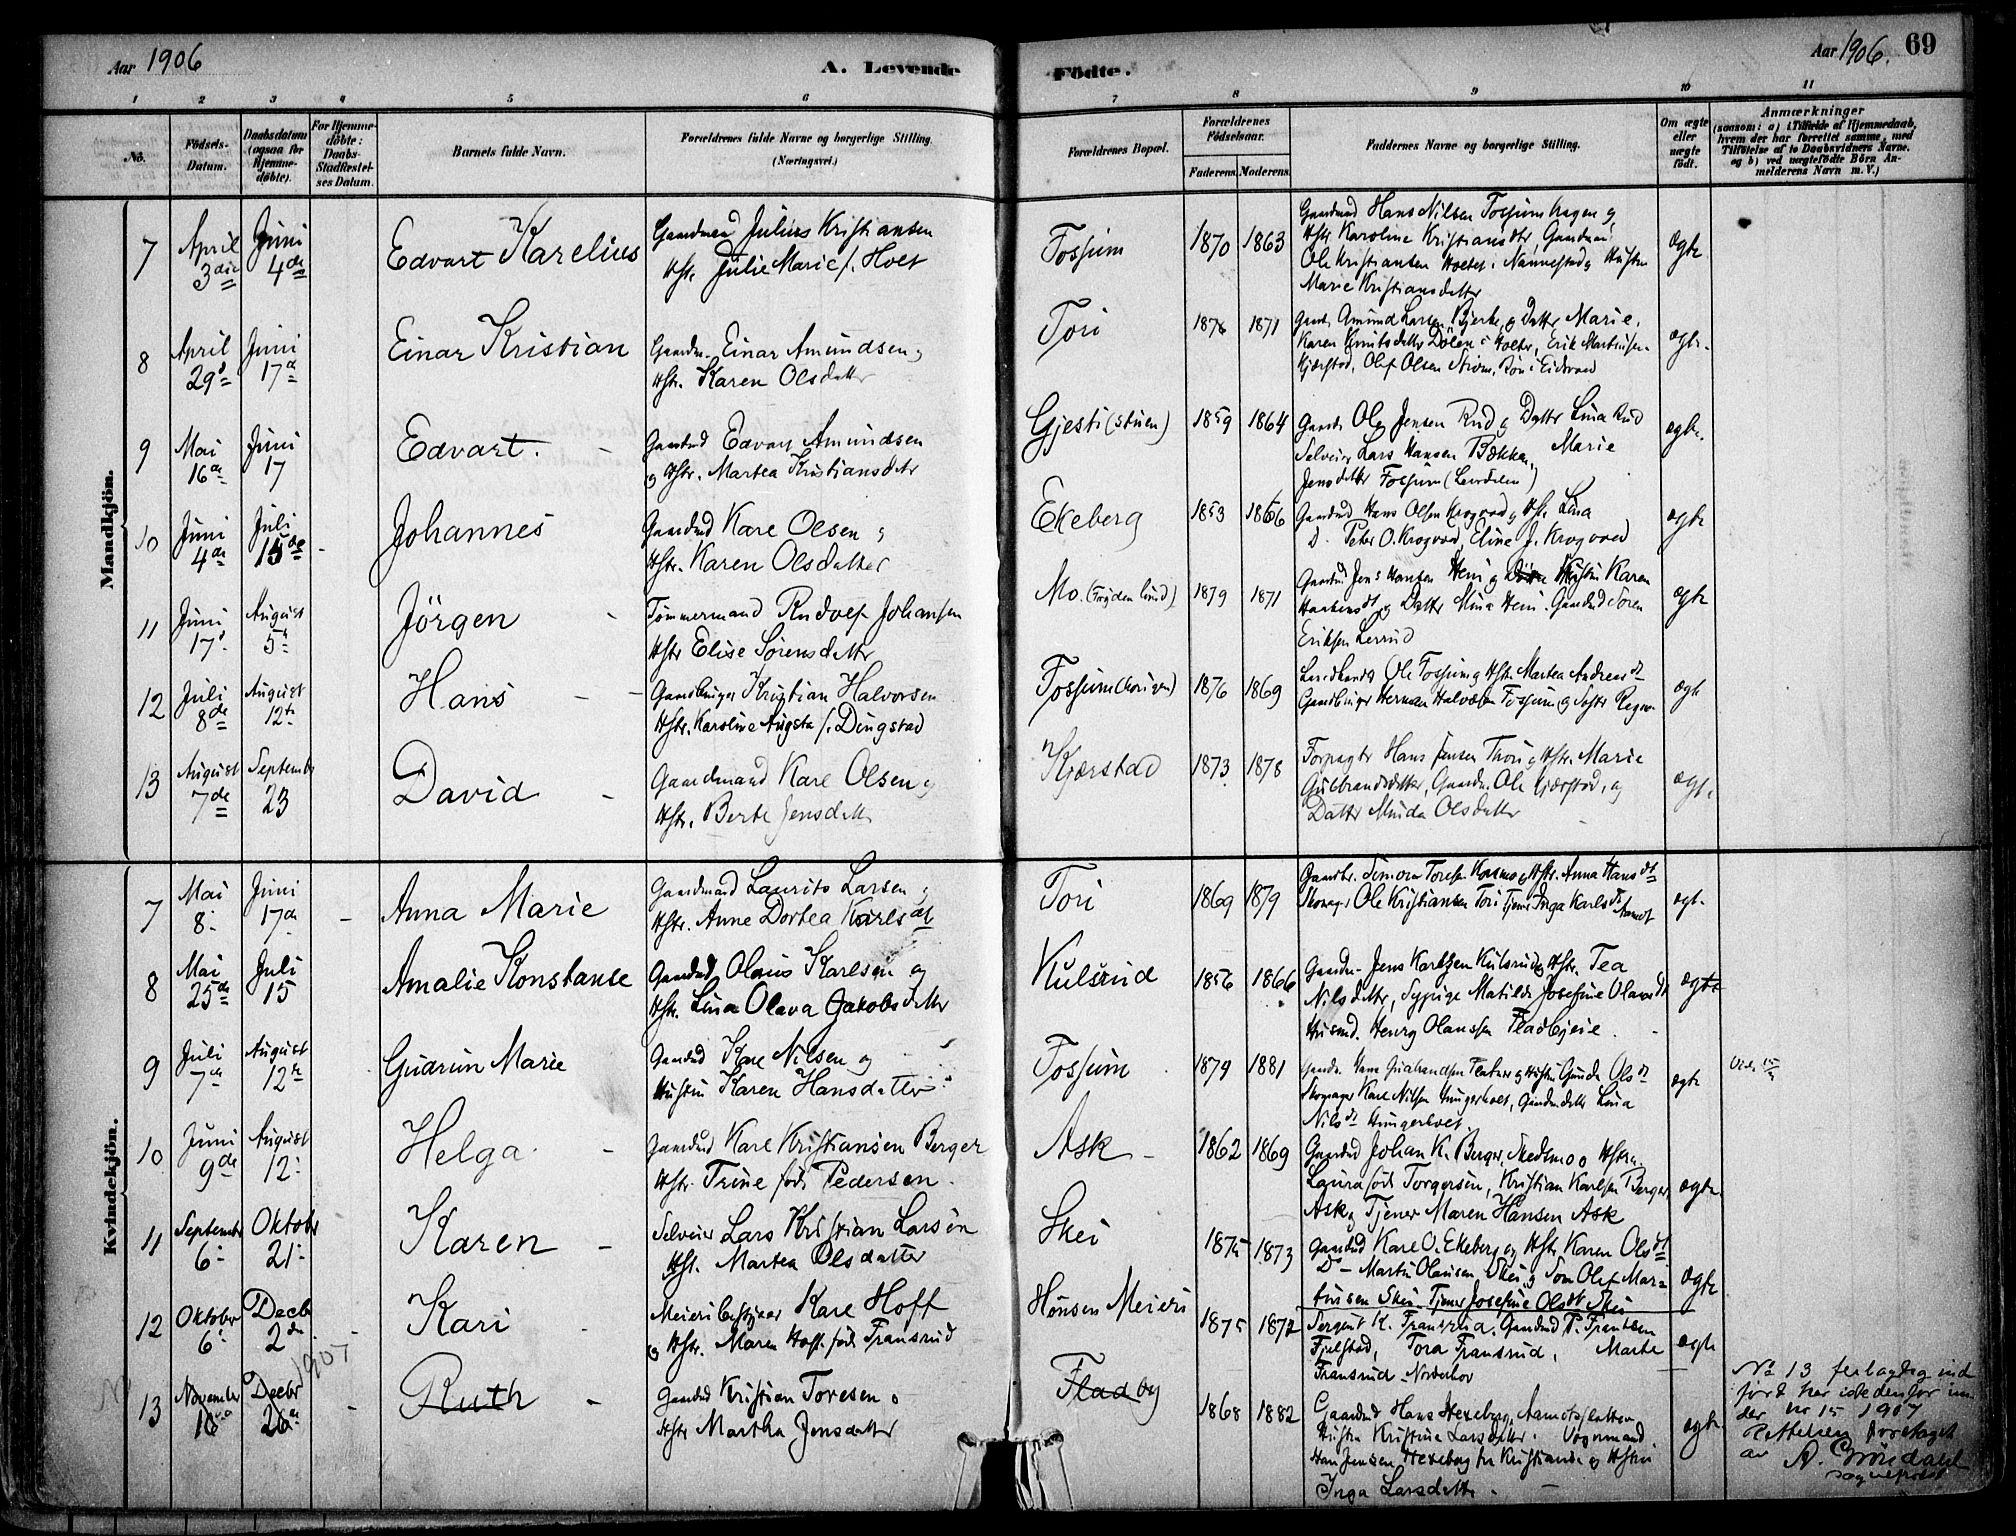 Aar 1906
A. Levende
Födte.
Aar 1906.
69
1 2 3 4 5 6 7 8 9 10 11
No.
Födsels-Datum.
Daabsdatum (ogsaa for Hjemmedöbte).
For Hjemmedöbte: Daabs-Stadfæstelses Datum.
Barnets fulde Navn.
Forældrenes fulde Navne og borgerlige Stilling. (Næringsvei.)
Forældrenes Bopæl.
Forældrenes Födselsaar.
Faderens. Moderens.
Faddernes Navne og borgerlige Stilling.
Om ægte eller uægte födt.
Anmærkninger
(saasom: a) i Tilfælde af Hjemmedaab,
hvem der har forrettet samme, med
Tilföielse af to Daabsvidners Navne.
og b) ved uægtefödte Börn An-
melderens Navn m. V.)
Mandkjön.
7 April 3die Juni 4de Edvart Karelius
Gaardmand Julius Kristiansen
Hstr. Julie Marie f. Holt
Fossum 1870 1863
Gaardmd Hans Nilsen Fossumhagen og
Hstr Karoline Kristiansdtr, Gaardm.
Ole Kristiansen Holter i Nannestad og Hustru
Marie Kristiansdatter
ægte
8 April 29d Juni 17d Einar Kristian
Gaardm. Einar Amundsen og
Hstr. Karen Olsdatter
Tori 1871
Gaardb. Amund Larsen Bjerke og Datter Marie,
Karen Knutsdatter Dølen i Holter, Erik Martinsen
Kjærstad, Olef Olsen
ægte.
9 Mai 16de Juni 17 Edvart.
Gaardmd Edvart Amundsen
og Hstr. Martea Kristiansdtr
Gjesti (stuen) 1859 1864
Gaardb Ole Jensen Rud og Datter Lina Rud
Selveier Lars Hansen Bækken, Marie
Jensdatter Fossum
ægte.
10 Juni 4de Juli 15de Johannes
Gaardmd Karl Olsen og
Hstr. Karen Olsdatter
Ekeberg 1853 1866
Gaardmd Hans Olsen Krogvod og Hstr Lina
D. Peter O. Krogvod, Eline J. Krogvod
ægte
11 Juni 17d August 5te Jörgen
Tømmermand Rudolf Johansen
Hstr Elise Sørensdatter
Mo. 1879 1871
Gaardmd Jens Hansen Hem og Hustru Karen
og Datter Mina Hem. Gaardmd Søren
Eriksen Lerrud
ægte
12 Juli 8de August 12te Hans
Gaardbruger Kristian Halvorsen
Hstr. Karoline Augusta f. Dingstad
Fossum 1876 1869
Landhandl Ole Fossum og Hstr Martea Andreasdt
Gaardbruger Herman Halvorsen Fossum og Søster
ægte
13 August 7de September 23 David
Gaardmand Karl Olsen og
Hstr. Berte Jensdatter
Kjærstad 1873 1878
Forpagter Hans Jensen Thori og Hstr. Marie
Gulbrandsdatter, Gaardm. Ole Kjærstad, og
Datter Minda Olsdatter
ægte
Kvindekjön.
7 Mai 8. Juni 17de Anna Marie
Gaardmand Laurits Larsen og
Hstr. Anne Dortea Karlsdt
Tori 1869 1879
Gaardbr. Simon Toresen Kosmo og Hstr. Anna Hansdt
Skomager Ole Kristiansen Tori Tjener Inga Karlsdt Aamot
ægte
8 Mai 25de Juli 15 Amalie Konstanse
Gaardmd Olaus Karlsen og
Hstr. Lina Olava Jakobsdatter
Kulsrud 1856 1866
Gaardm. Jens Karlsen Kulsrud og Hstr. Tea
Nilsdatter, Sypige Matilde Josefine Olausdt
Husmd. Henry Olaussen Fladbyeie.
ægte
9 Juli 7de August 12te Gudrun Marie
Gaardmd Karl Nilsen og
Hustru Karen Hansdatter
Fossum 1879 1881
Gaardm. Hans Gulbrandsen Flatner og Hustru Gunda Olsdt
Skomager Karl Nilsen Hungerholt, Gaardmdatter Lina
Nilsdt Hungerholt.
ægte
10 Juni 9de August 12te Helga.
Gaardmd Karl Kristiansen Berger
Hstr. Trine født Pedersen.
Ask 1862 1869
Gaardmd Johan K. Berger, Skedsmo og Hstru.
Laura født Torgersen, Kristian Karlsen Berger,
Ask og Tjener Maren Hansen Ask
ægte.
11 September 6. Oktober 21. Karen
Selveier Lars Kristian Larsen
Hstr. Martea Olsdatter
Skei 1875 1873
Gaardmd Karl O. Ekeberg og Hstr Karen Olsdt
Do Martin Olausen Skei, og Søn Olef Mar-
tinsen Skei. Tjener Josefine Olsdt Skei
ægte
12 Oktober 6. Decbr 2den Kari
Meieribestyrer Karl Hoff
og Hstr. Maren Hoff født Fransrud
Hønsen Meieri 1875 1872
Sergent K. Fransrud. Gaardmd P. Frantzen
Fjelstad, Tora Fransrud, Marte
Fransrud Norderhov
ægte
13 November 16de Decbr 26de 1907 Ruth
Gaardmd Kristian Toresen og
Hstr Martha Jensdatter
Fladby 1868 1882
Gaardmd Hans Hexeberg, Aamotsletten
Hustru Kristine Larsdatter.
Hans Jensen Hexeberg fra Kristiania og Hstru
Inga Larsdatter.
ægte
No 13 feilagtig ind
ført her istedenfor un
der Nr 15 1907
Rettelsen foretaget
av A. Gröndahl
sogneprest